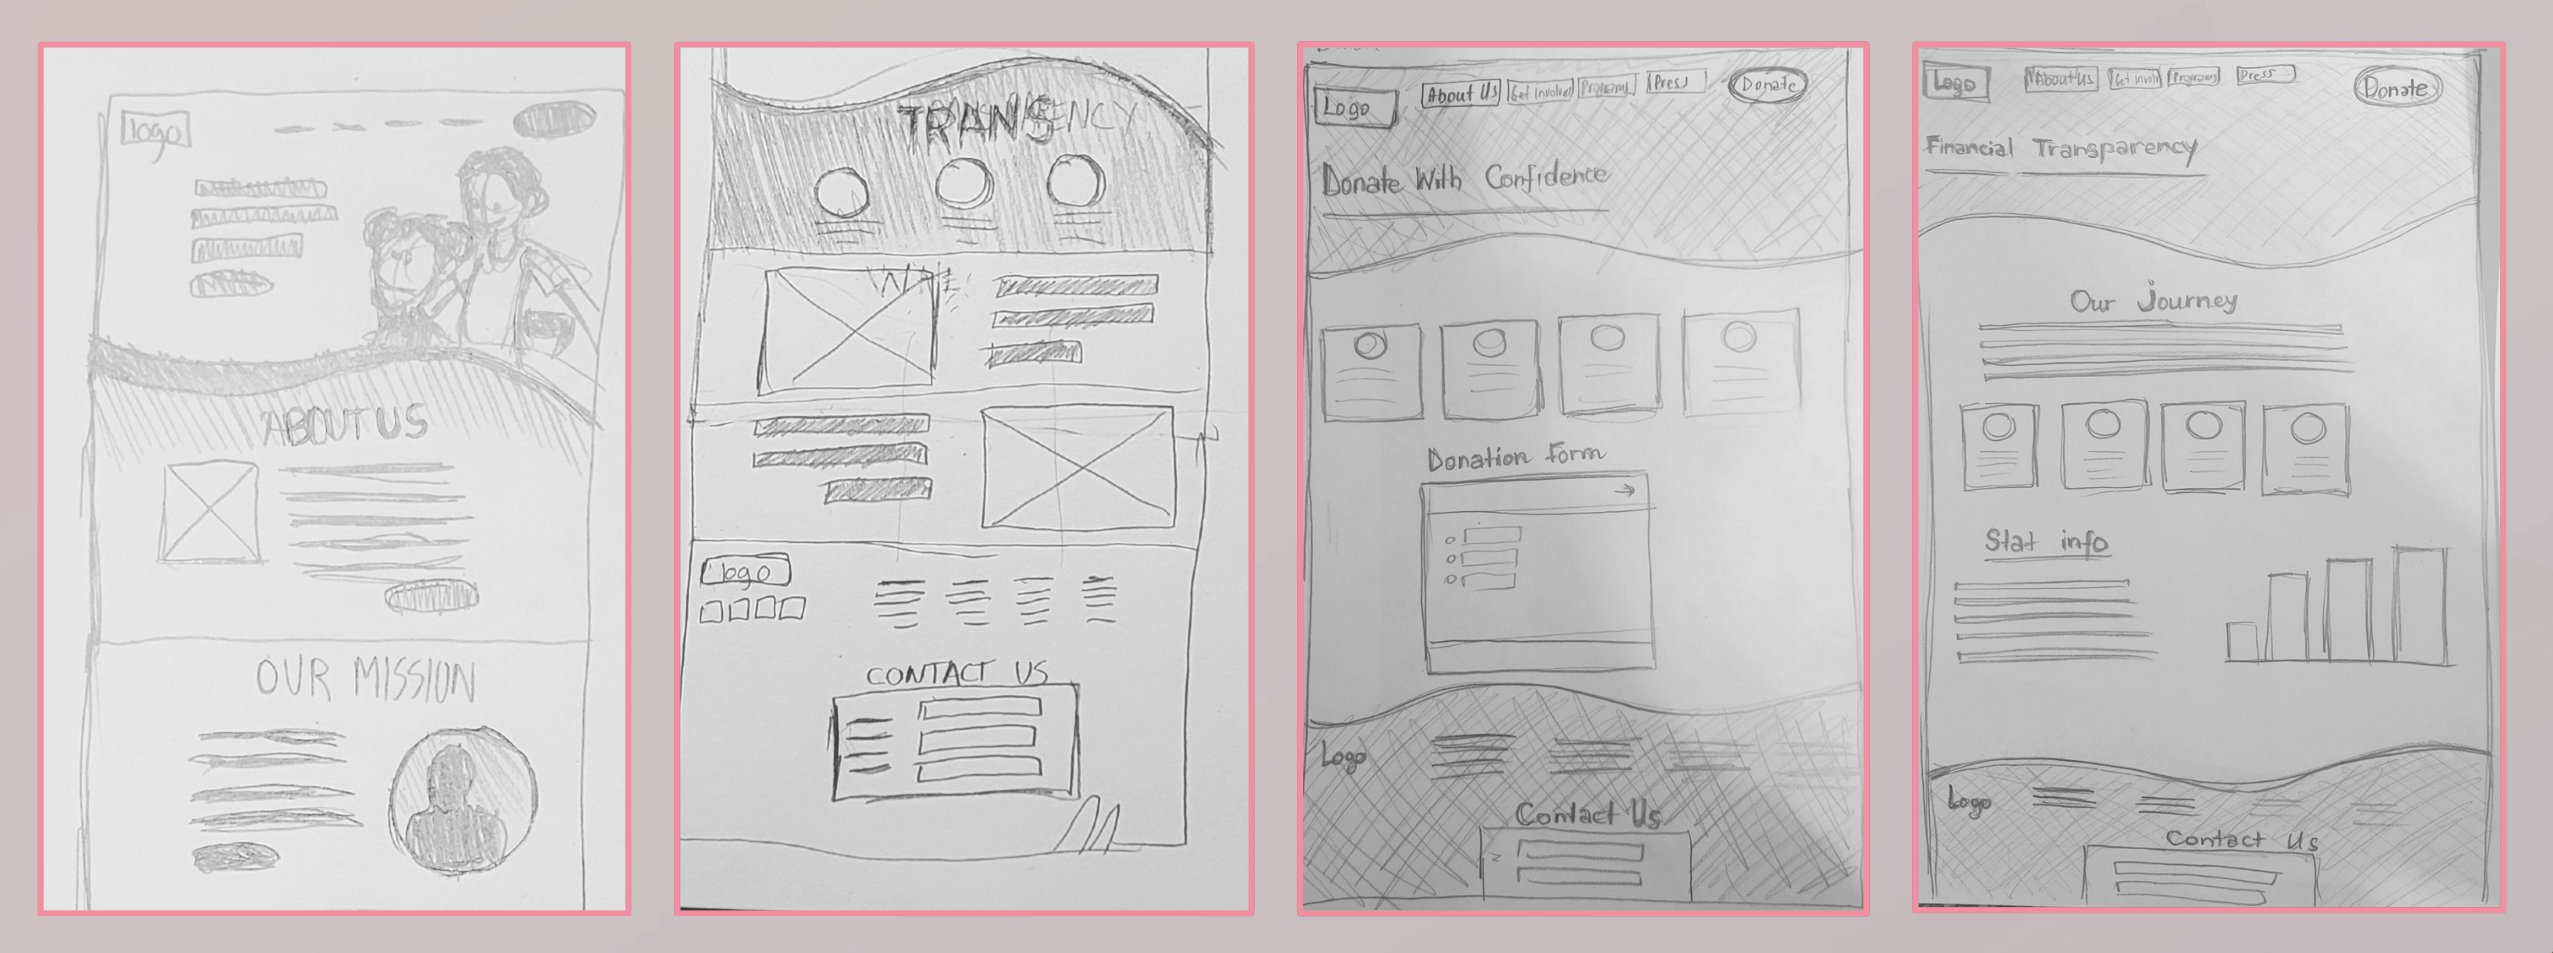 logo
ABOUT US
OUR MISSION
TRANS
ENCY
logo
CONTACT US
Logo
About Us
Get Involved
Programs
Press
Donate
Donate With Confidence
Donation Form
Logo
Contact Us
Logo
About Us
Get Involv
Programs
Press
Donate
Financial Transparency
Our Journey
Stat info
Logo
Contact Us